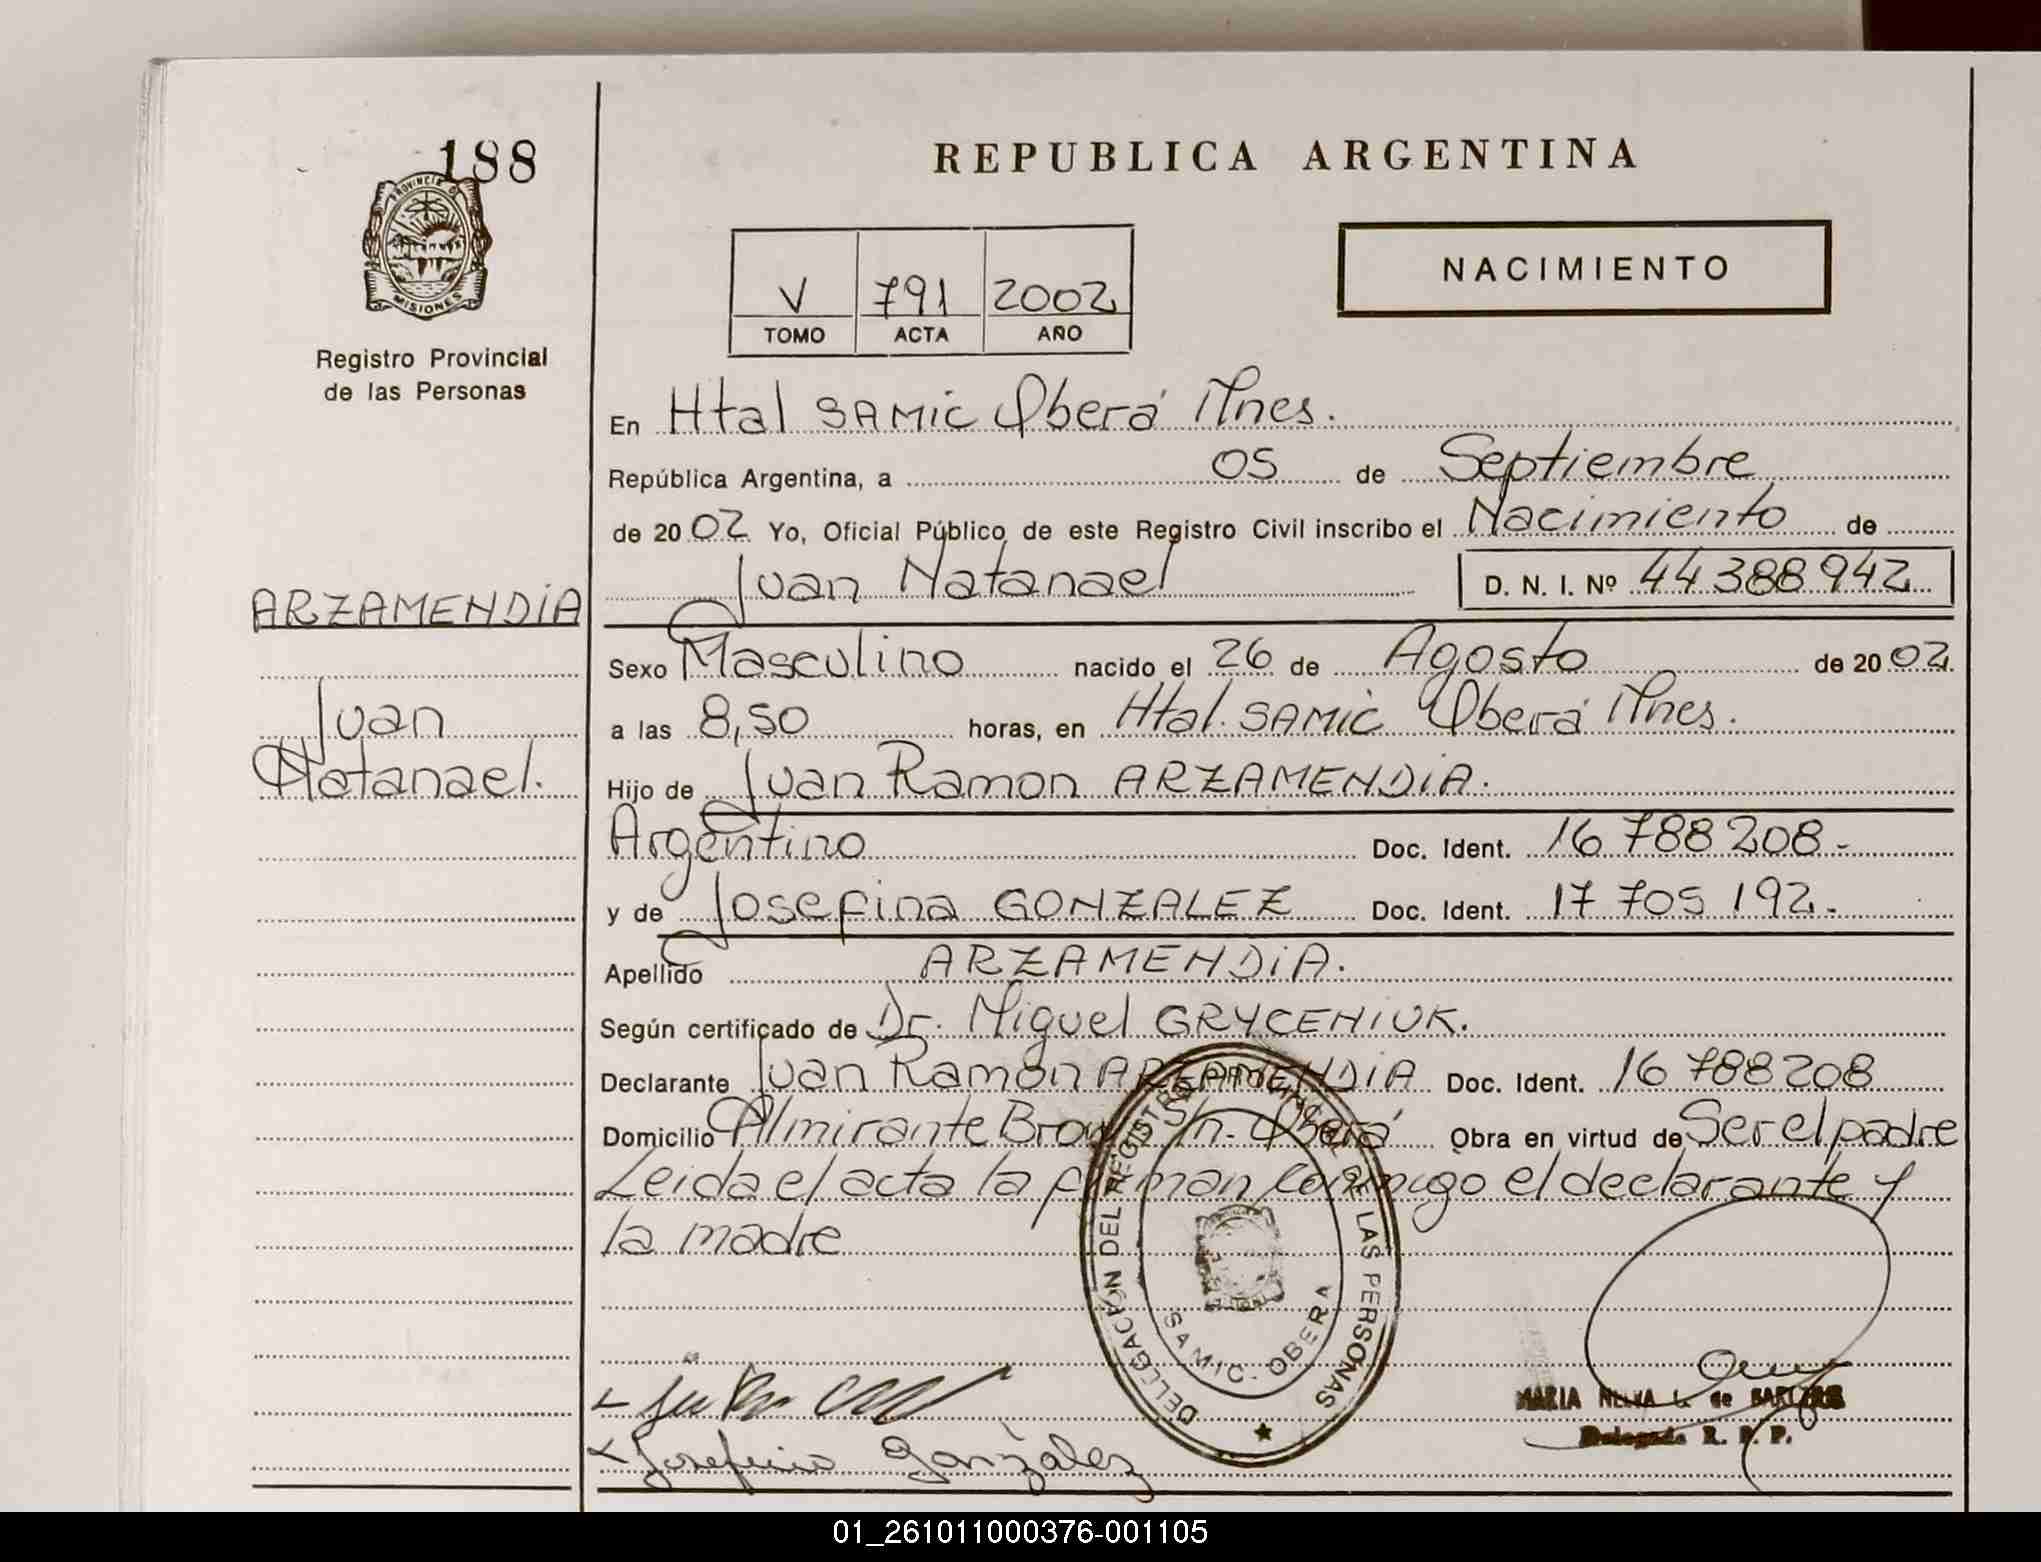 188
PROVINCIA DE
MISIONES
Registro Provincial
de las Personas
REPUBLICA ARGENTINA
V 791 2002
TOMO ACTA AÑO
NACIMIENTO
En Htal SAMIC Oberá Mnes.
República Argentina, a 05 de Septiembre
de 2002 Yo, Oficial Público de este Registro Civil inscribo el Nacimiento de
Juan Natanael D. N. I. Nº 44.388.942
ARZAMENDIA
Juan
Natanael.
Sexo Masculino nacido el 26 de Agosto de 2002
a las 8,50 horas, en Htal. SAMIC Oberá Mnes.
Hijo de Juan Ramon ARZAMENDIA.
Argentino Doc. Ident. 16 788 208.-
y de Josefina GONZALEZ Doc. Ident. 17 705 192.-
Apellido ARZAMENDIA.
Según certificado de Dr. Miguel GRYCENIUK.
Declarante Juan Ramon ARZAMENDIA Doc. Ident. 16 788 208
Domicilio Almirante Brown S/n.- Oberá Obra en virtud de Ser el padre
Leida el acta la firman conmigo el declarante y
la madre
DELEGACIÓN DEL REGISTRO PROVINCIAL DE LAS PERSONAS
SAMIC. OBERA
MARIA de
Delegada R. P. P.
Josefina González
01_261011000376-001105